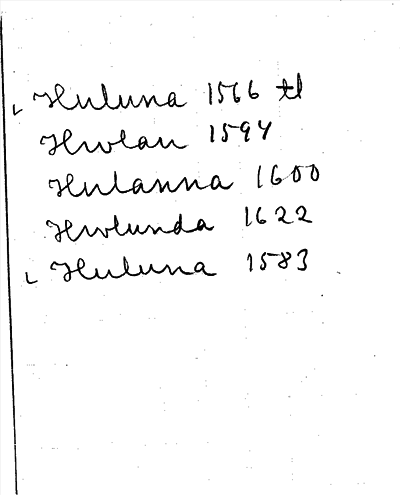 Huluna 1566 tl
Hwlau 1594
Hulanna 1600
Hwlunda 1622
Huluna 1583